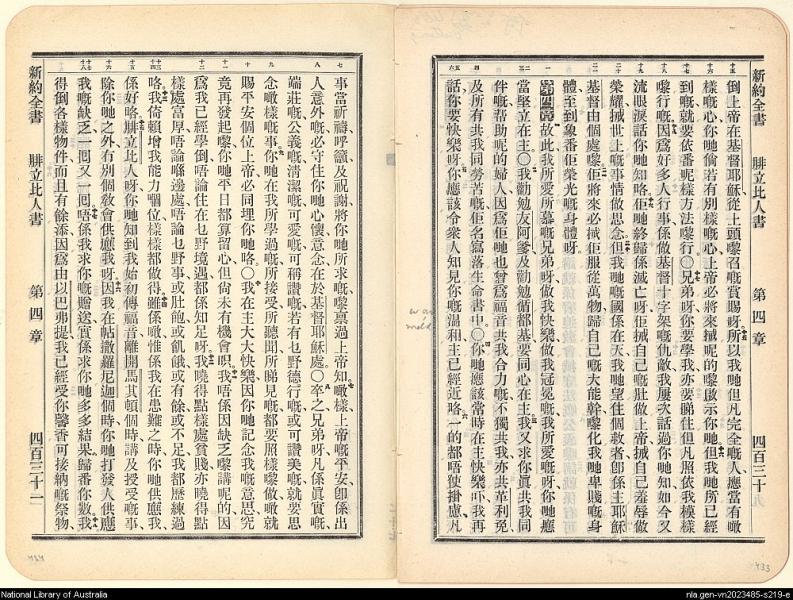 新約全書 腓立比人書 第四章 四百三十
倒上帝在基督耶穌從上頭嚟召嘅賞賜呀所以我哋但凡完全嘅人應當有噉
樣嘅心你哋倘若有別樣嘅心上帝必將來㨢呢的嚟啟示你哋但我哋所已經
到嘅就要依番呢樣方法嚟行〇兄弟呀你要學我亦要睇住但凡照依我模樣
嚟行嘅因爲好多人行事係做基督十字架嘅仇敵我屢次話過你哋知如今又
流眼淚話你哋知咯佢哋終歸係滅亡呀佢㨢自己嘅肚做上帝㨢自己羞辱做
榮耀㨢世上嘅事情做思念但我哋嘅國係在天我哋望住個救者卽係主耶穌
基督由個處嚟佢將來必㨢佢服從萬物歸自己嘅大能幹嚟化我哋卑賤嘅身
體至到象番佢榮光嘅身體呀
第四章故此我所愛所慕嘅兄弟呀做我快樂做我冠冕嘅我所愛嘅呀你哋應
當堅立在主〇我勸勉友阿爹及勸勉循都基要同心在主我又求你眞共我同
件嘅帮助呢的婦人因爲佢哋也曾爲福音共我合力嘅不獨共我亦共革利免
及所有共我同勞苦嘅佢名寫落生命書中〇你哋應該常時在主快樂吓我再
話你要快樂呀你應該令衆人知見你嘅温和主已經近咯一的都唔使掛慮凡
事當祈禱呼籲及祝謝將你哋所求嘅嚟禀過上帝知噉樣上帝嘅平安卽係出
人意外嘅必守住你哋心懷意念在於基督耶穌處〇卒之兄弟呀凡係眞實嘅
端莊嘅公義嘅清潔嘅可愛嘅可稱讚嘅若有乜野德行嘅或可讚美嘅就要思
念噉樣嘅事你哋在我所學過嘅所接受所聽聞所睇見嘅都要照樣嚟做噉就
賜平安個位上帝必同埋你哋咯〇我在主大大快樂因你哋記念我嘅意思究
竟再發起嚟你哋平日都算留心但尚未有機會唄我唔係因缺乏嚟講呢的因
爲我已經學倒唔論住在乜野境遇都係知足呀我曉得點樣處貧賤亦曉得點
樣處富厚唔論喺邊處唔論乜野事或肚飽或飢餓或有餘或不足我都歷練過
咯我倚賴增我能力嗰位樣樣都做得雖係噉惟係我在患難之時你哋供應我
係好咯腓立比人呀你哋知到我始初傳福音離開馬其頓個時講及授受嘅事
除你哋之外冇別個敎會供應我呀因我在帖撒羅尼迦個時你哋打發人供應
我嘅缺乏一囘又一囘唔係我求你嘅贈送實係求你哋多多結果歸番你數我
得倒各樣物件而且有餘添因爲由以巴弗提我已經受你馨香可接納嘅祭物
新約全書 腓立比人書 第四章 四百三十一
433
National Library of Australia
nla.gen-vn2023485-s219-e